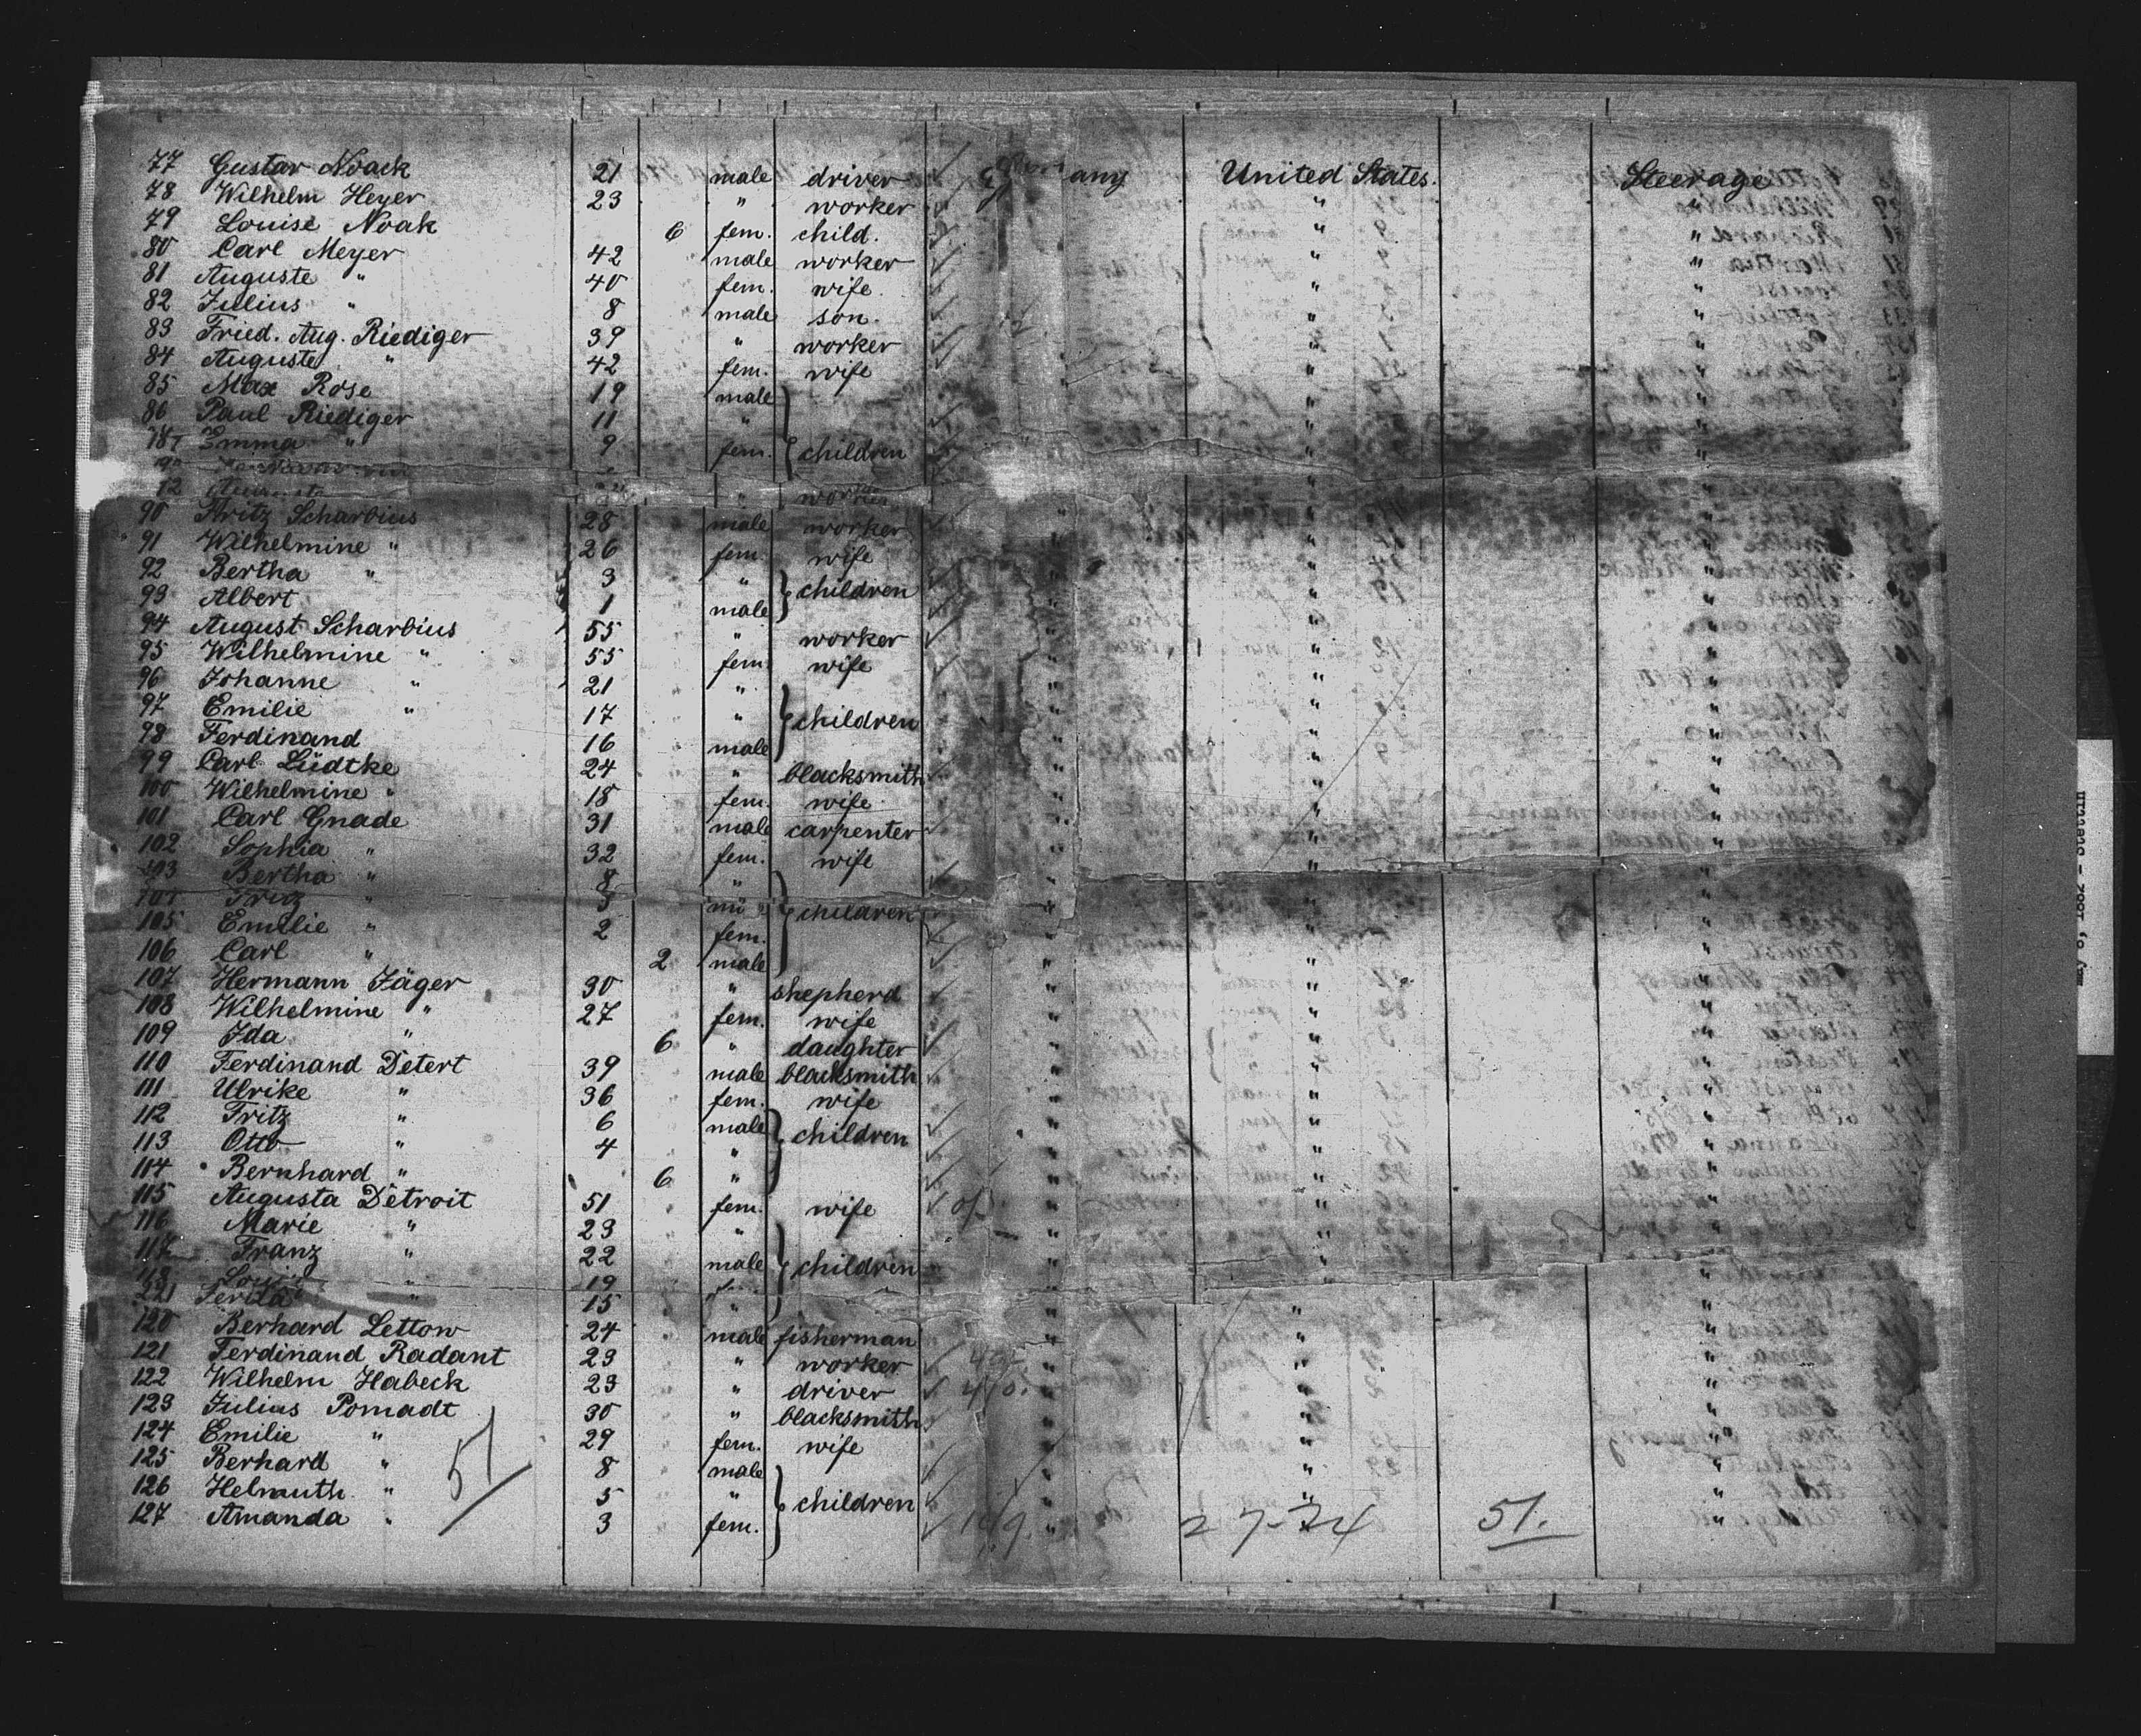 77 Gustav Noack 21 male driver Germany United States. Steerage
78 Wilhelm Heyer 23 " worker " "
79 Louise Noak 6 fem. child. " "
80 Carl Meyer 42 male worker " "
81 Auguste " 40 fem. wife. " "
82 Julius " 8 male son. " "
83 Fried. Aug. Riediger 39 " worker " "
84 Auguste " 42 fem. wife " "
85 Max Rose 19 male " "
86 Paul Riediger 11 " " "
Emma " 9 fem. children " "
" worker
90 Fritz Scharbius 28 male worker " " "
91 Wilhelmine " 26 fem wife " " "
92 Bertha " 3 " children " " "
93 Albert 1 male " " "
94 August Scharbius 55 " worker " " "
95 Wilhelmine " 55 fem wife " " "
96 Johanne " 21 " " " "
97 Emilie " 17 " children " " "
98 Ferdinand 16 male " " "
99 Carl Lüdtke 24 " blacksmith " " "
100 Wilhelmine " 18 fem. wife " " "
101 Carl Gnade 31 male carpenter " " "
102 Sophia " 32 fem. wife " " "
103 Bertha " 8 " " "
104 Fritz " children "
105 Emilie " 2 fem. " " "
106 Carl " 2 male " " "
107 Hermann Jäger 30 " shepherd " " "
108 Wilhelmine " 27 fem. wife " " "
109 Ida " 6 " daughter " " "
110 Ferdinand Detert 39 male blacksmith " " "
111 Ulrike " 36 fem. wife " " "
112 Fritz " 6 male children " " "
113 Otto " 4 " " " "
114 Bernhard " 6 " " " "
115 Augusta Detroit 51 fem. wife " " "
116 Marie " 23 " " " "
117 Franz " 22 male children " " "
" 19 "
" 15 " " " "
120 Berhard Lettow 24 male fisherman " " "
121 Ferdinand Radant 23 " worker " " "
122 Wilhelm Habeck 23 " driver " " "
123 Julius Pomadt 30 " blacksmith " " "
124 Emilie " 29 fem. wife " "
125 Berhard " 8 male " "
126 Helmuth " 5 " children " "
127 Amanda " 3 fem. " "
51
27-24 51.
May 8, 1882 - Stettin